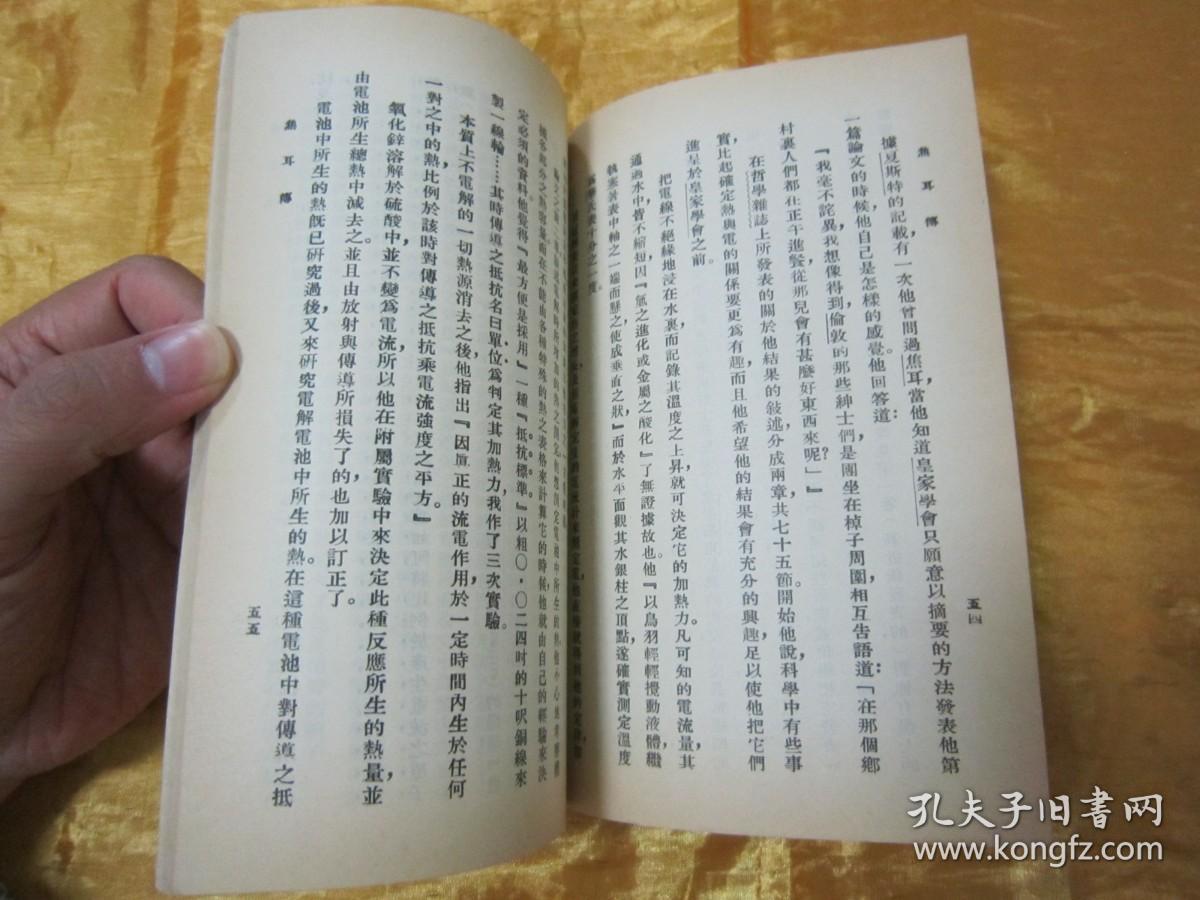 焦耳傳
五四
據夏斯特的記載,有一次他曾問過焦耳,當他知道皇家學會只願意以摘要的方法發表他第
一篇論文的時候,他自己是怎樣的感覺。他回答道:
『我毫不詫異。我想像得到,倫敦的那些紳士們是團坐在棹子周圍,相互告語道:「在那個鄉
村裏人們都在正午進餐,從那兒會有甚麼好東西來呢?」』
在哲學雜誌上所發表的關於他結果的敍述分成兩章共七十五節。開始他說,科學中有些事
實,比起確定熱與電的關係要更爲有趣,而且他希望他的結果會有充分的興趣,足以使他把它們
進呈於皇家學會之前。
把電線不絕緣地浸在水裏而記錄其溫度之上昇,就可決定它的加熱力。凡可知的電流量,其
通過水中皆不縮短,因『氫之進化或金屬之酸化』了無證據故也。他『以鳥羽輕輕攪動液體,繼
執塞著表中軸之一端而懸之使成垂直之狀』,而於水平面觀其水銀柱之頂點,遂確實測定溫度
十分之一度。
定必須的資料。他覺得『最方便是採用』一種『抵抗標準。』以粗〇·〇二四吋的十呎銅線來
製一線輪……其時傳導之抵抗名曰單位。爲判定其加熱力,我作了三次實驗。
本質上不電解的一切熱源消去之後,他指出『因眞正的流電作用,於一定時間內生於任何
一對之中的熱比例於該時對傳導之抵抗乘電流強度之平方。』
氧化鋅溶解於硫酸中並不變爲電流,所以他在附屬實驗中來決定此種反應所生的熱量,並
由電池所生總熱中減去之。並且由放射與傳導所損失了的也加以訂正了。
電池中所生的熱旣已研究過後,又來研究電解電池中所生的熱。在這種電池中對傳導之抵
焦耳傳
五五
孔夫子旧书网
www.kongfz.com